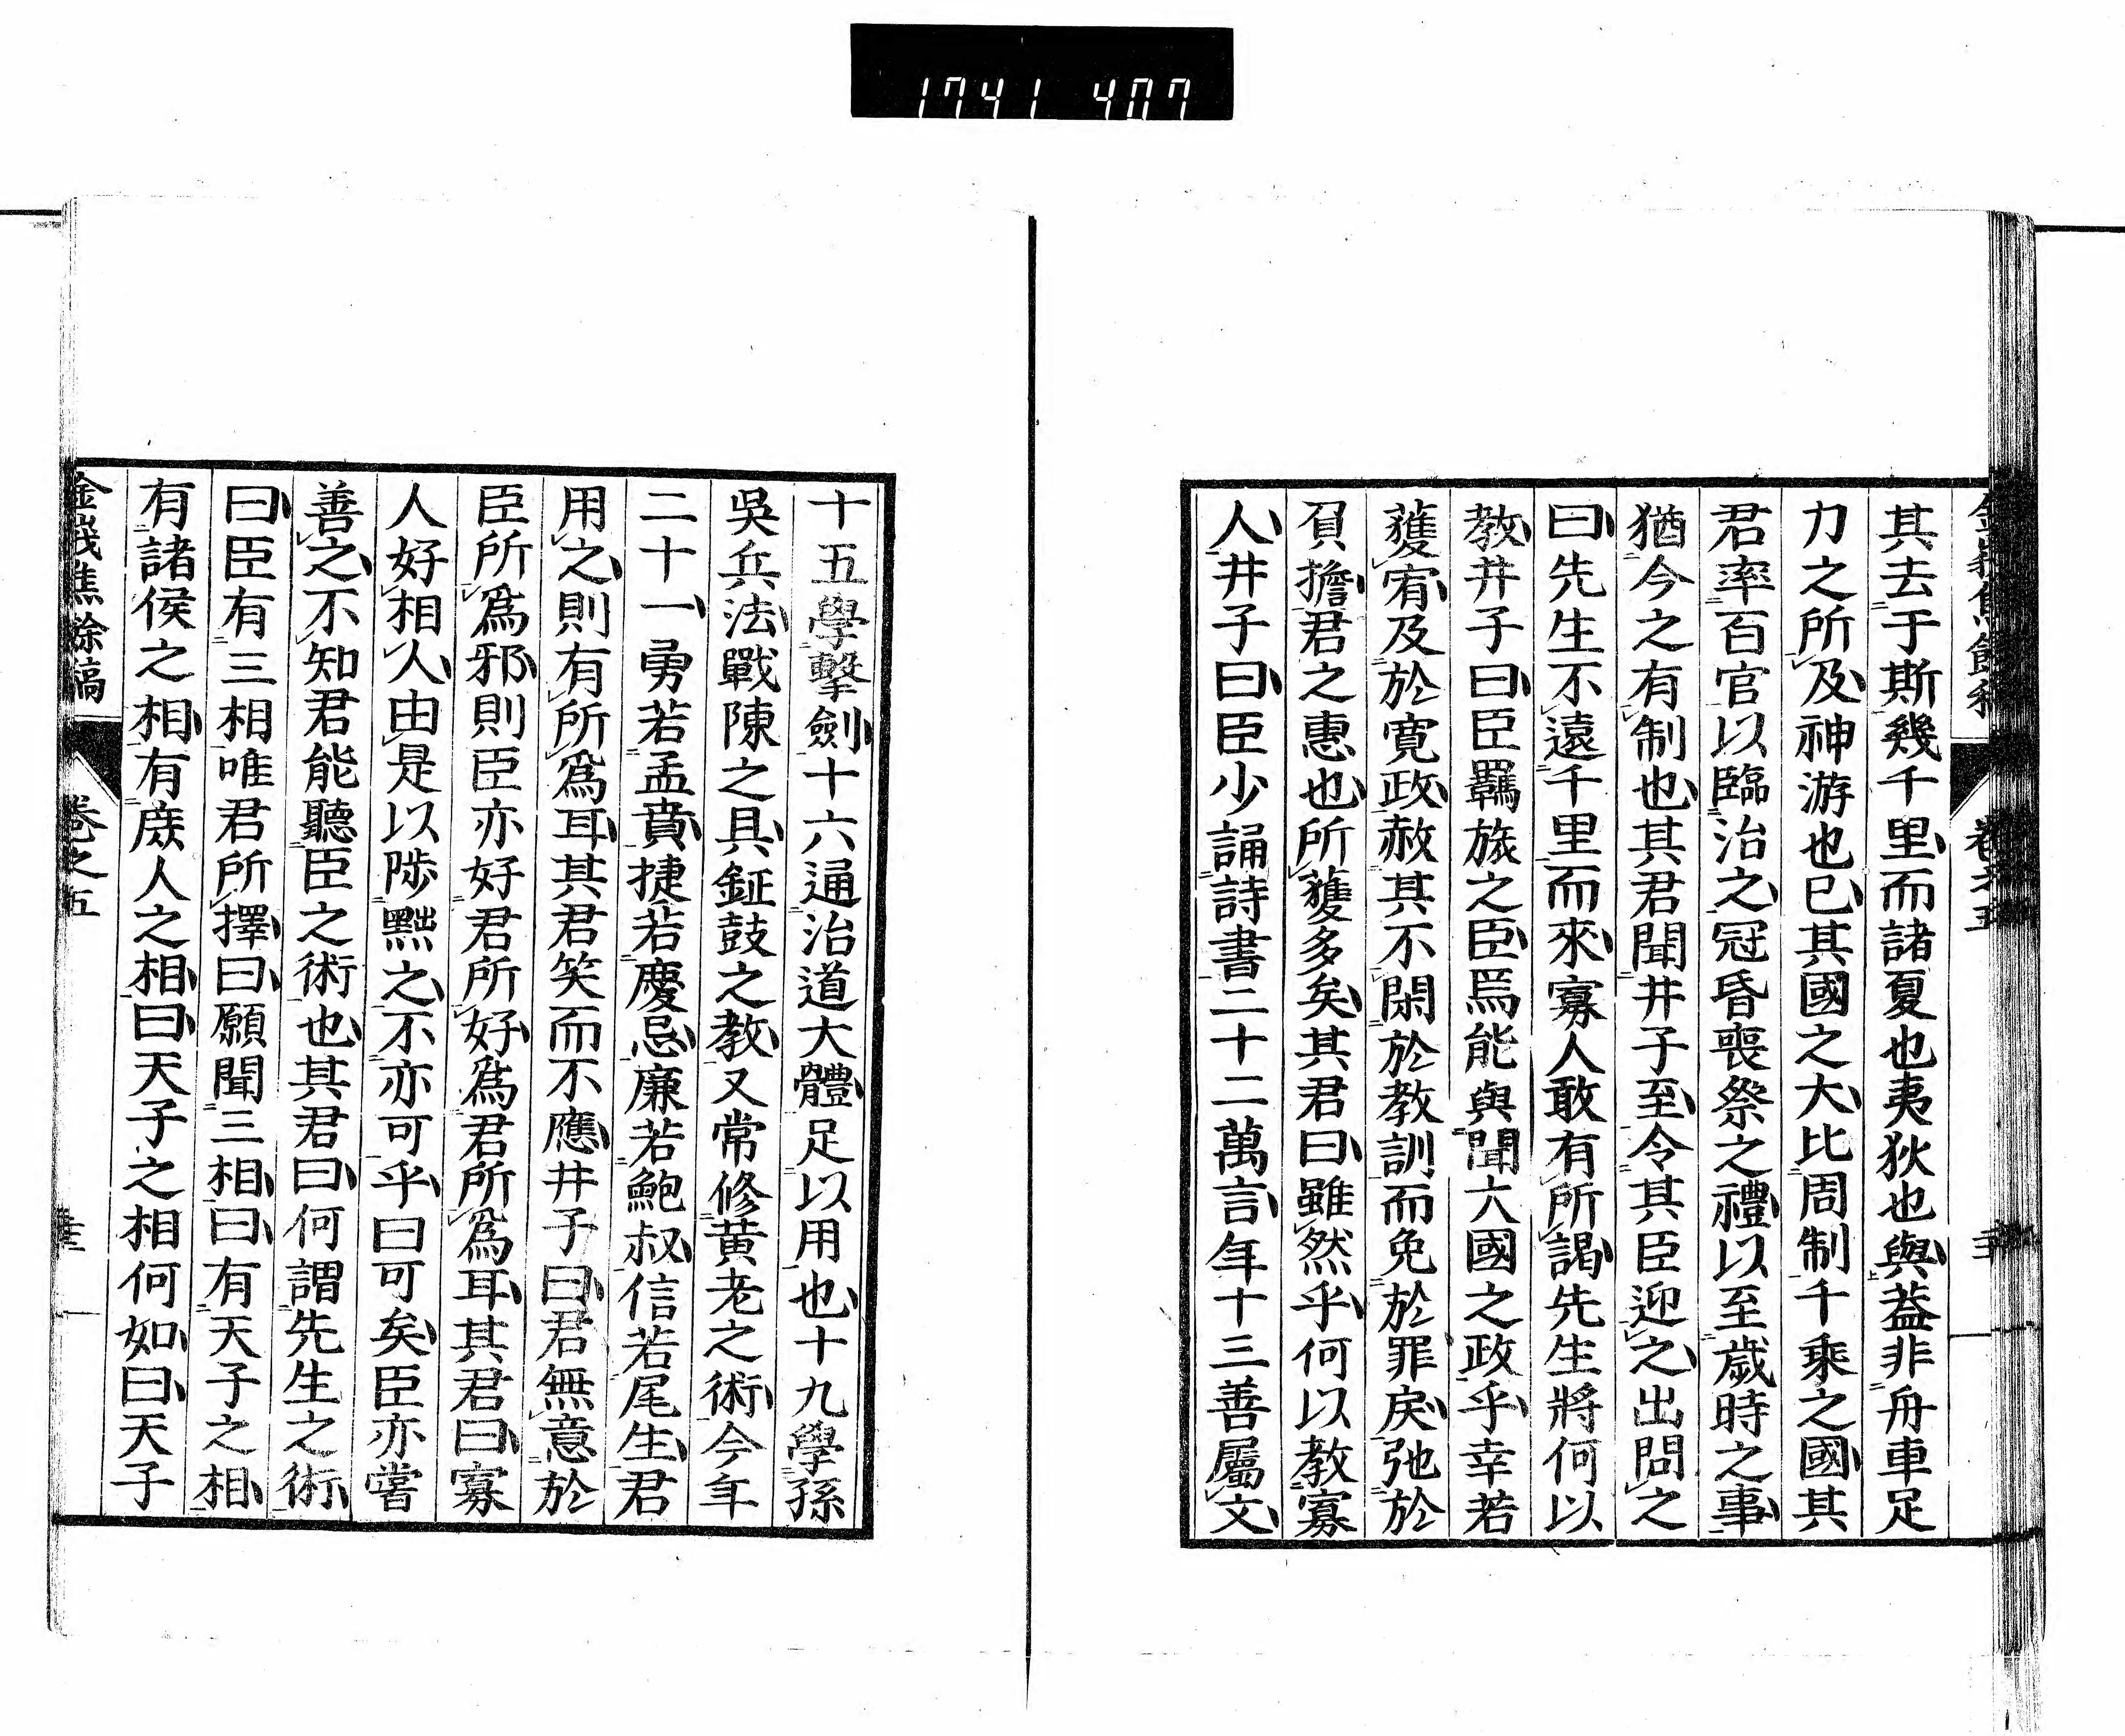 1741 407
其去于斯幾千里而諸夏也夷狄也與蓋非舟車足
力之所及神游也已其國之大比周制千乘之國其
君率百官以臨治之冠昏喪祭之禮以至歲時之事
猶今之有制也其君聞井子至令其臣迎之出問之
曰先生不遠千里而來寡人敢有所謁先生將何以
教井子曰臣羈旅之臣焉能與聞大國之政乎幸若
獲宥及於寬政赦其不閑於教訓而免於罪戾弛於
負擔君之惠也所獲多矣其君曰雖然乎何以教寡
人井子曰臣少誦詩書二十二萬言年十三善屬文
十五學擊劍十六通治道大體足以用也十九學孫
吳兵法戰陳之具鉦鼓之教又常修黃老之術今年
二十一勇若孟賁捷若慶忌廉若鮑叔信若尾生君
用之則有所爲耳其君笑而不應井子曰君無意於
臣所爲邪則臣亦好君所好爲君所爲耳其君曰寡
人好相人由是以陟黜之不亦可乎曰可矣臣亦嘗
善之不知君能聽臣之術也其君曰何謂先生之術
曰臣有三相唯君所擇曰願聞三相曰有天子之相
有諸侯之相有庶人之相曰天子之相何如曰天子
金峩焦餘稿 卷之五